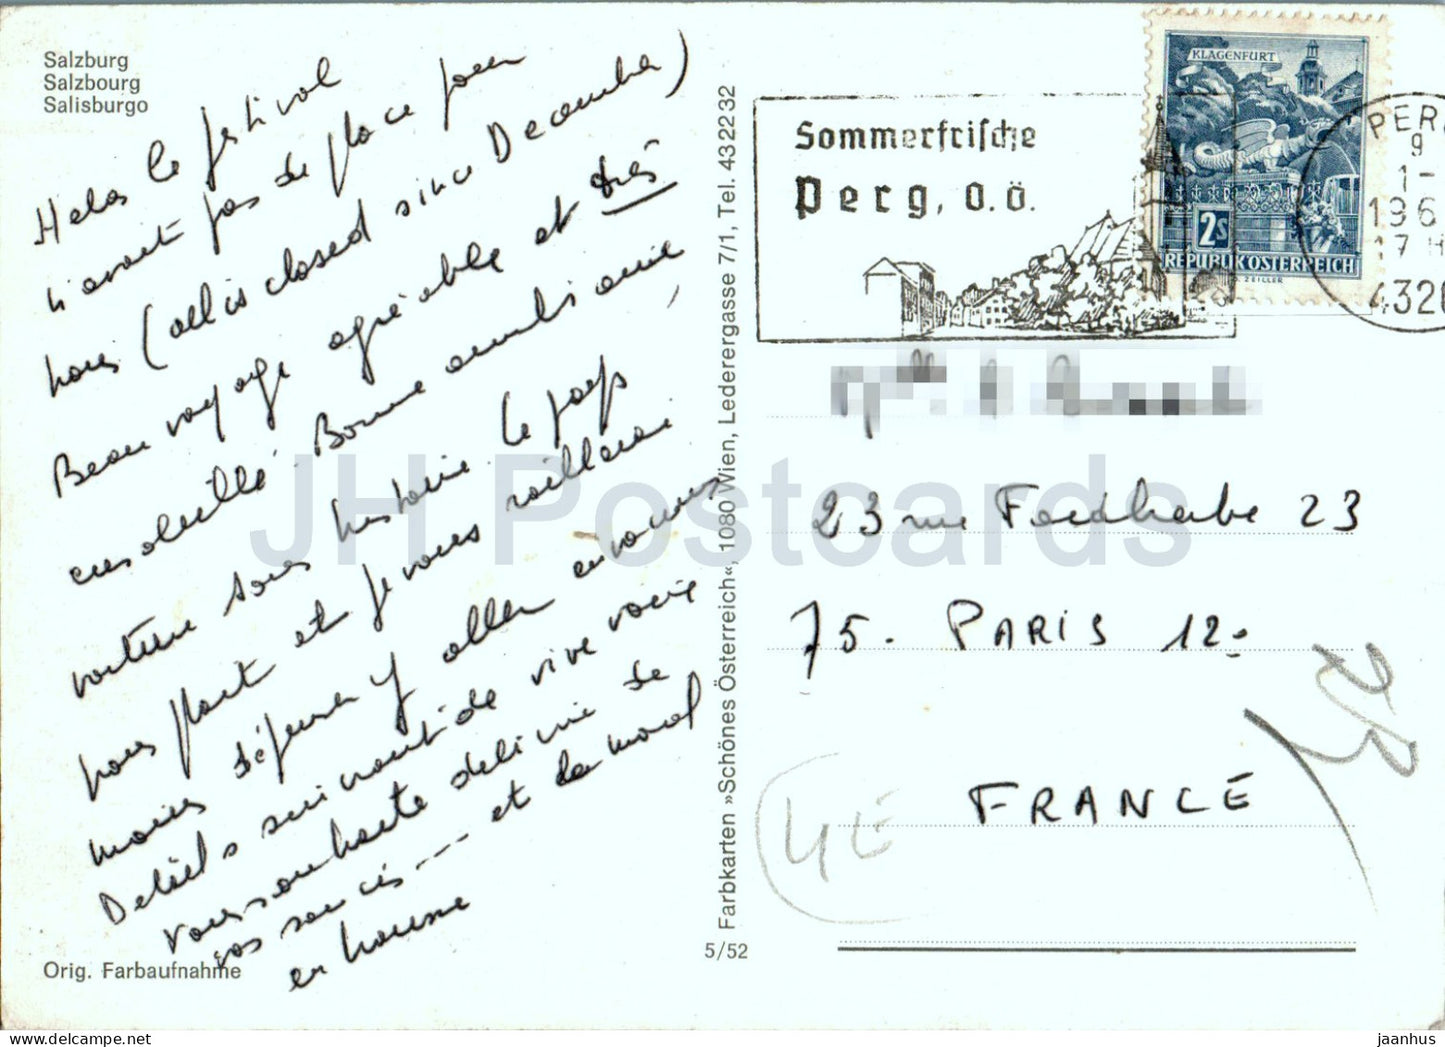 Salzburg
Salzbourg
Salisburgo
Helas le festival
n'avait pas de place pour
nous (all is closed since December)
Beau voyage agréable et très
ensoleillé. Bonne ambiance
voiture sans histoire le pays
nous plait et je vous
moins déjeuner y aller
Details suivront de vive voix
vous souhaite de
vos soucis --- et la moral
en hausse
Orig. Farbaufnahme
5/52
Farbkarten »Schönes Österreich«, 1080 Wien, Lederergasse 7/1, Tel. 43 22 2 32
Sommerfrische
Perg, O.Ö.
KLAGENFURT
2s
REPUBLIK ÖSTERREICH
PER
9
1-
196
17
4320
23 rue Faidherbe 23
75. PARIS 12e
FRANCE
4E
JH Postcards
jaanhus